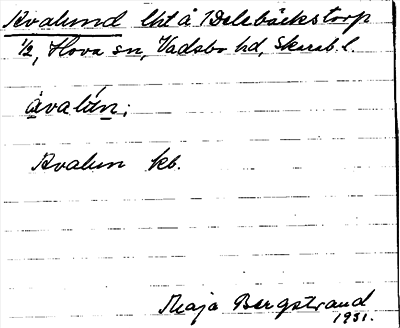 Kvalund lht å Delebäckstorp
1/2, Hova sn, Vadsbo hd, Skarab. l.
åvalån;
Kvalun kb.
Maja Bergstrand
1931.